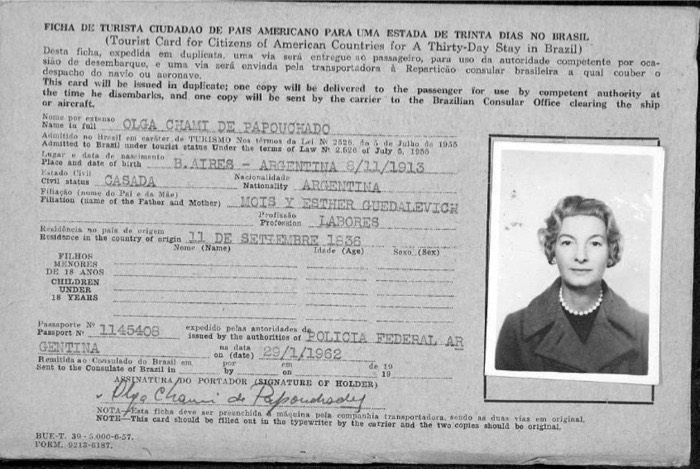 FICHA DE TURISTA CIUDADAO DE PAIS AMERICANO PARA UMA ESTADA DE TRINTA DIAS NO BRASIL
(Tourist Card for Citizens of American Countries for A Thirty-Day Stay in Brazil)
Desta ficha, expedida em duplicata, uma via será entregue ao passageiro, para uso da autoridade competente por oca-
sião de desembarque, e uma via será enviada pela transportadora à Repartição consular brasileira a qual couber o
despacho do navio ou aeronave.
This card will be issued in duplicate; one copy will be delivered to the passenger for use by competent authority at
the time he disembarks, and one copy will be sent by the carrier to the Brazilian Consular Office clearing the ship
or aircraft.
Nome por extenso
Name in full OLGA CHAMI DE PAPOUCHADO
Admitido no Brasil em caráter de TURISMO Nos têrmos da Lei Nº 2526, de 5 de Julho de 1955
Admitted to Brazil under tourist status Under the terms of Law Nº 2.526 of July 5, 1955
Lugar e data de nascimento
Place and date of birth B.AIRES - ARGENTINA 8/11/1913
Estado Civil Nacionalidade
Civil status CASADA Nationality ARGENTINA
Filiação (nome do Pai e da Mãe)
Filiation (name of the Father and Mother) MOIS Y ESTHER GUEDALEVICH
Profissão
Profession LABORES
Residência no país de origem
Residence in the country of origin 11 DE SETIEMBRE 1836
Nome (Name) Idade (Age) Sexo (Sex)
FILHOS
MENORES
DE 18 ANOS
CHILDREN
UNDER
18 YEARS
Passaporte Nº expedido pelas autoridades de
Passport Nº 1145408 issued by the authorities of POLICIA FEDERAL AR
GENTINA na data
on (date) 29/1/1962
Remitida ao Consulado do Brasil em por em de 19
Sent to the Consulate of Brazil in by on 19
ASSINATURA DO PORTADOR (SIGNATURE OF HOLDER)
Olga Chami de Papouchado
NOTA—Esta ficha deve ser preenchida à máquina pela companhia transportadora, sendo as duas vias em original.
NOTE—This card should be filled out in the typewriter by the carrier and the two copies should be original.
BUE-T. 39 - 5.000-6-57.
FORM. 9213-6187.